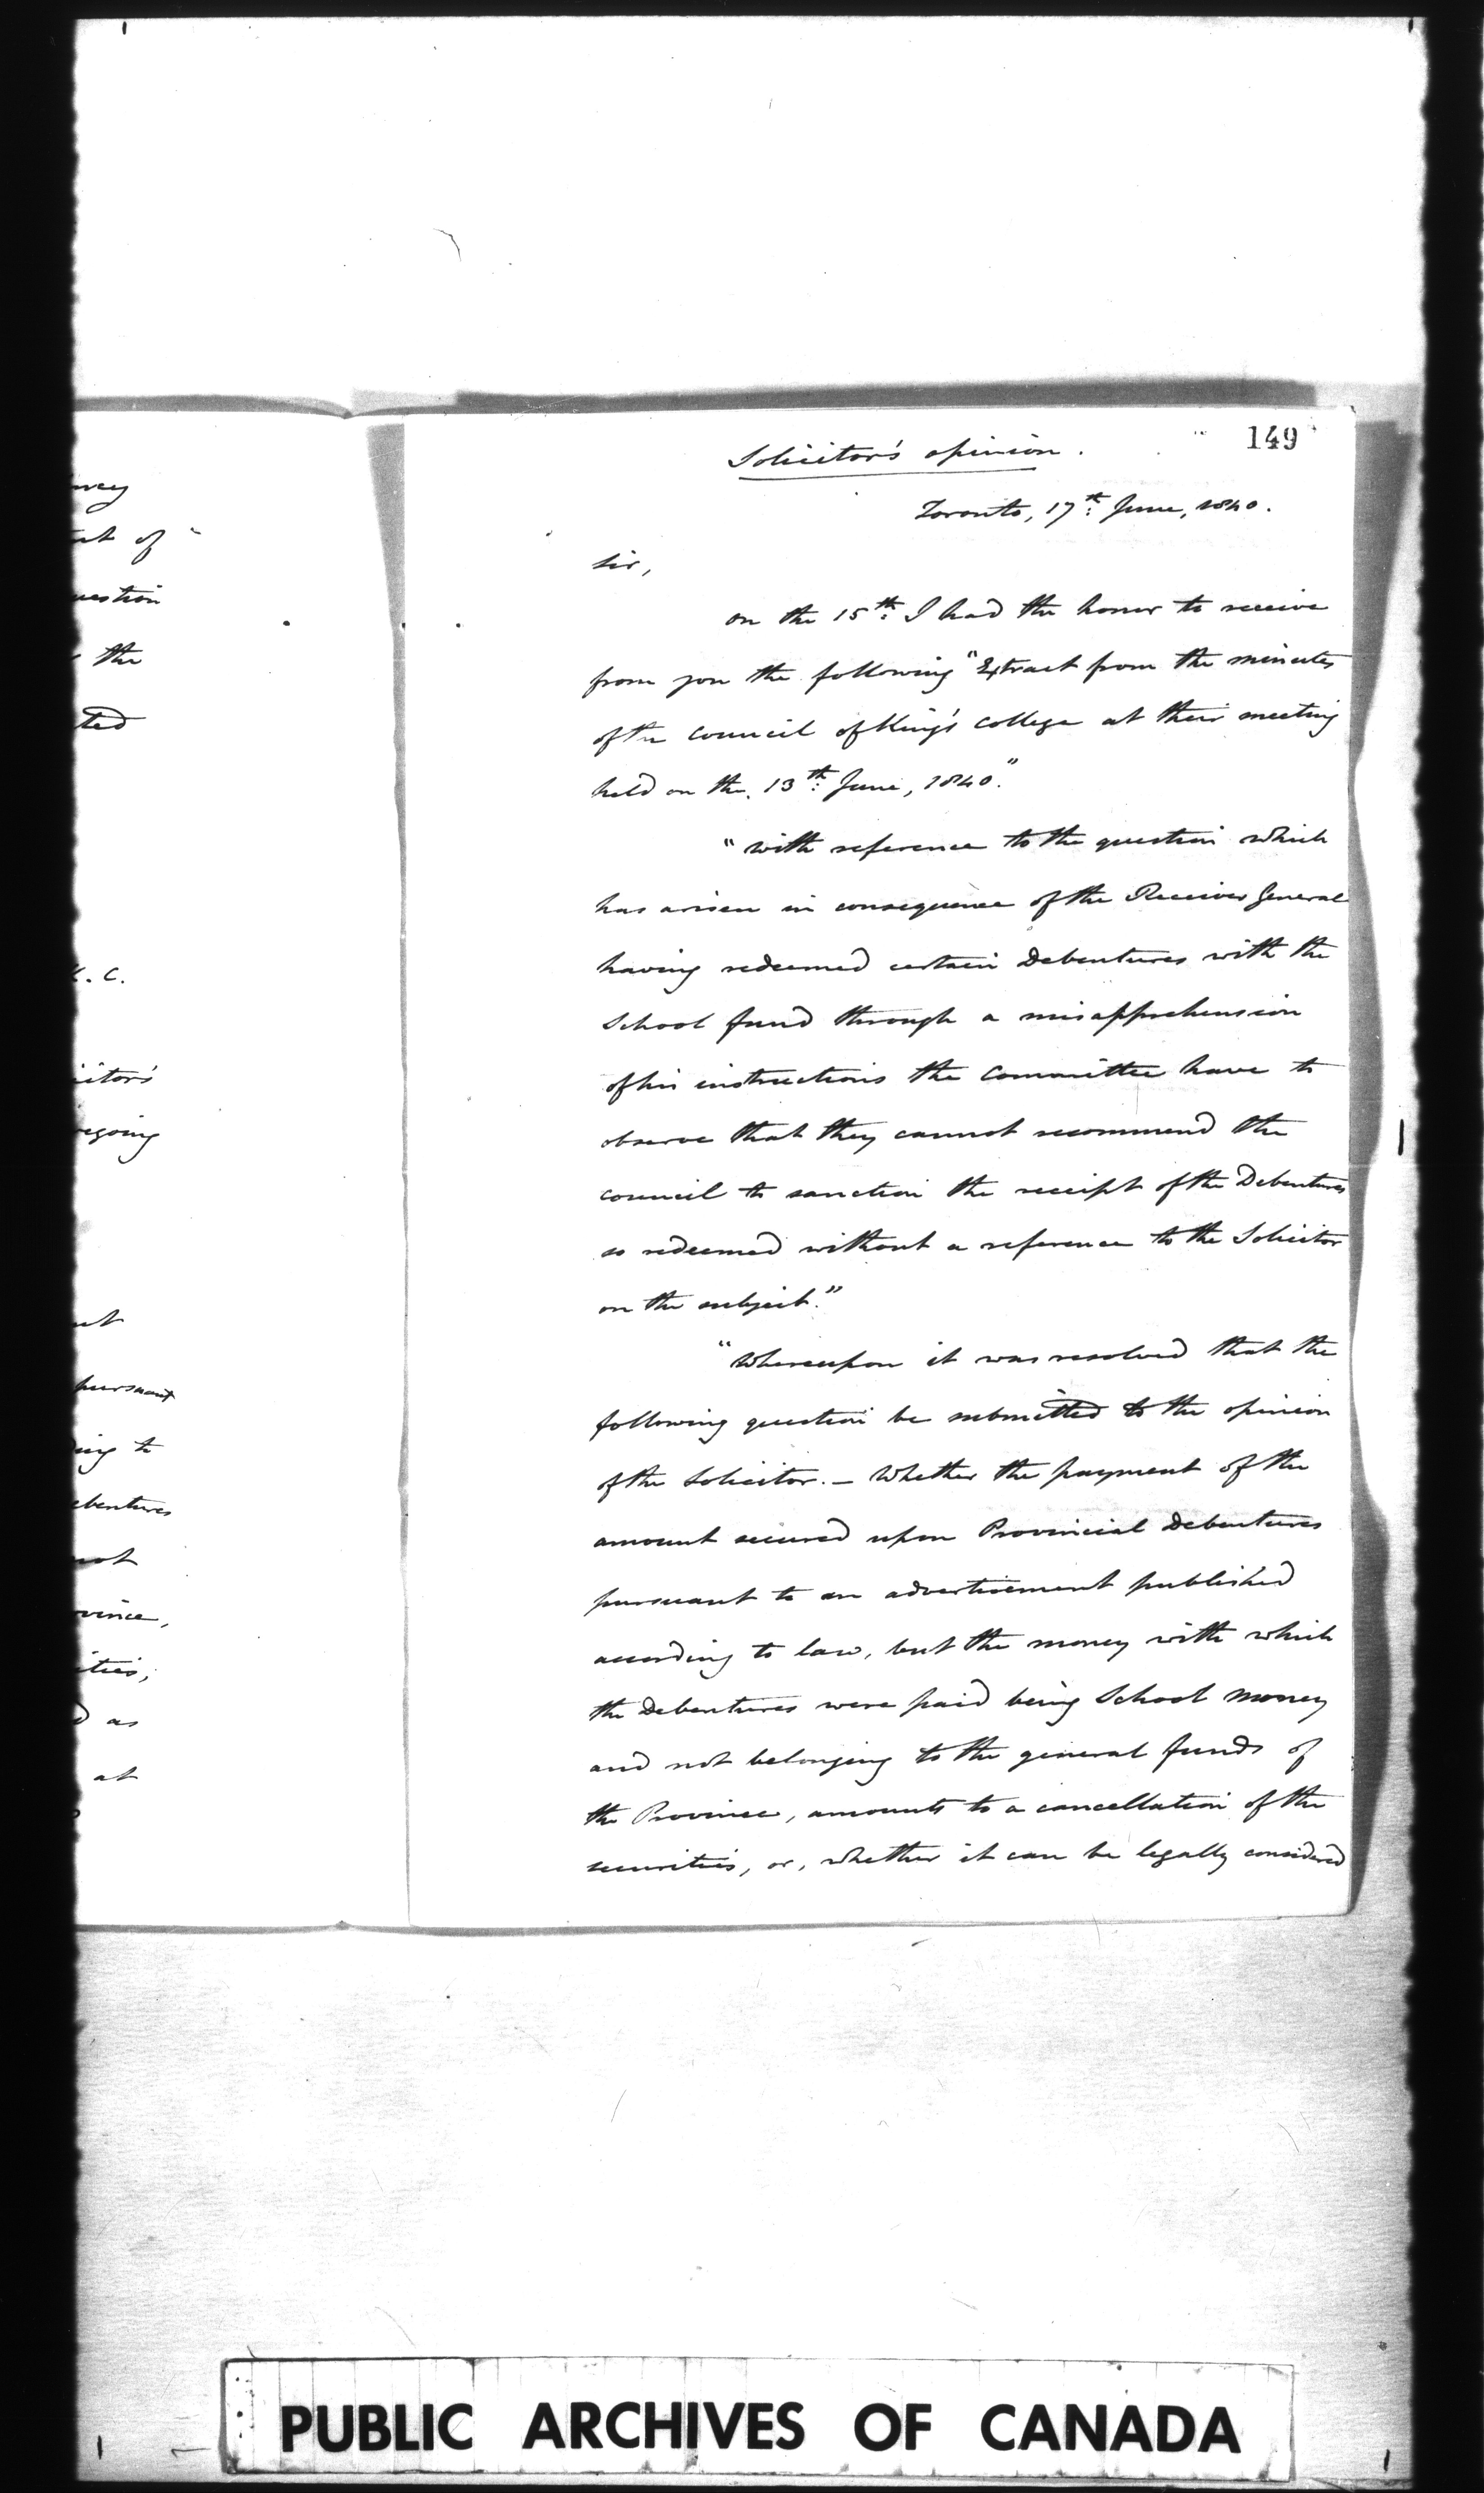 149
Solicitor's opinion.
Toronto, 17th June, 1840.
Sir,
on the 15th I had the honor to receive
from you the following "Extract from the minutes
of the Council of King's College at their meeting
held on the 13th June, 1840."
"With reference to the question which
has arisen in consequence of the Receiver General
having redeemed certain Debentures with the
School fund through a misapprehension
of his instructions the Committee have to
observe that they cannot recommend the
council to sanction the receipt of the Debentures
so redeemed without a reference to the Solicitor
on the subject."
"Whereupon it was resolved that the
following question be submitted to the opinion
of the Solicitor. – Whether the payment of the
amount secured upon Provincial Debentures
pursuant to an advertisement published
according to law, but the money with which
the Debentures were paid being School money
and not belonging to the general funds of
the Province, amounts to a cancellation of the
securities, or, whether it can be legally considered
of
the
K. C.
pursuant
to
as
at
PUBLIC ARCHIVES OF CANADA